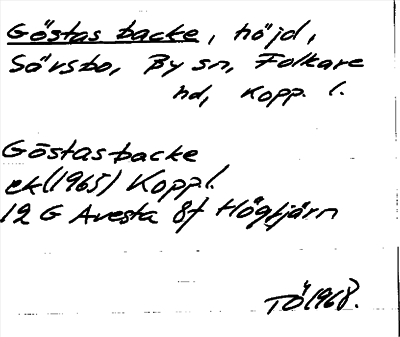 Göstas backe, höjd,
Sörsbo, By sn, Folkare
hd, Kopp. l.
Göstasbacke
ek (1965) Koppl.
12 G Avesta 8f Högtjärn
TÖ 1968.